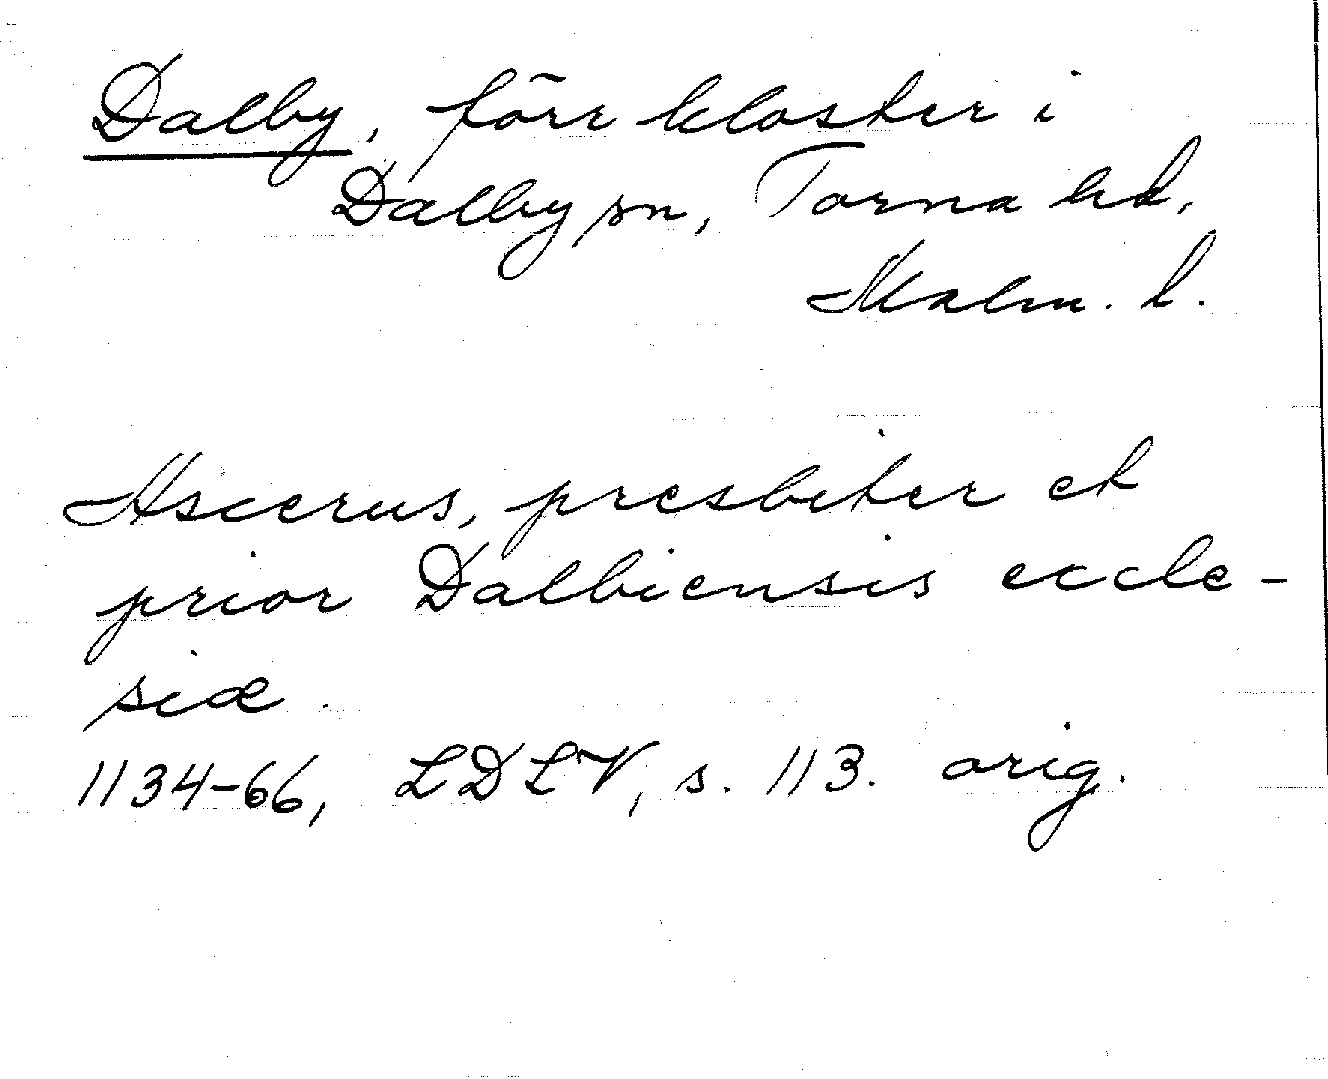 Dalby, förr kloster i
Dalby sn, Torna hd,
Malm. l.
Ascerus, presbiter et
prior Dalbiensis eccle-
siæ.
1134-66, LDLV, s. 113. orig.